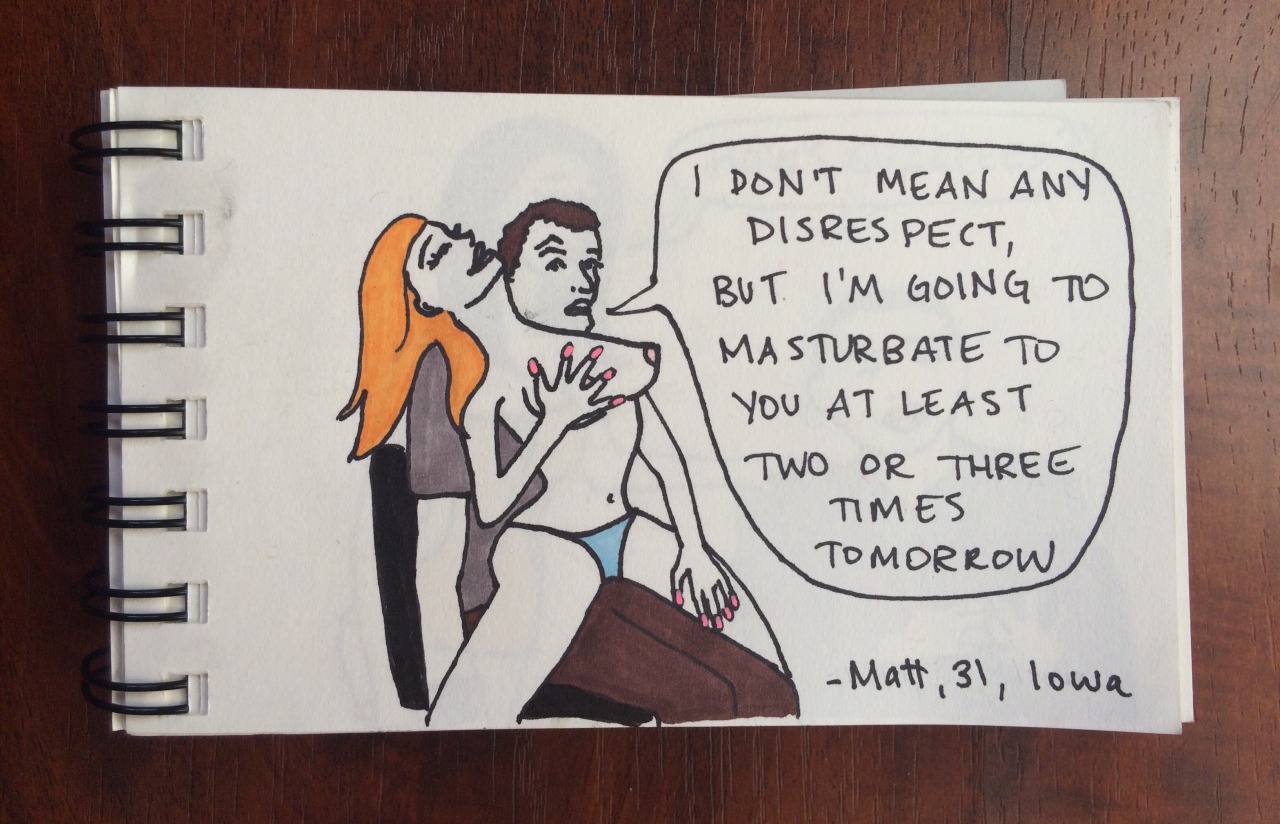 I DON'T MEAN ANY
DISRESPECT,
BUT I'M GOING TO
MASTURBATE TO
YOU AT LEAST
TWO OR THREE
TIMES
TOMORROW
-Matt, 31, Iowa